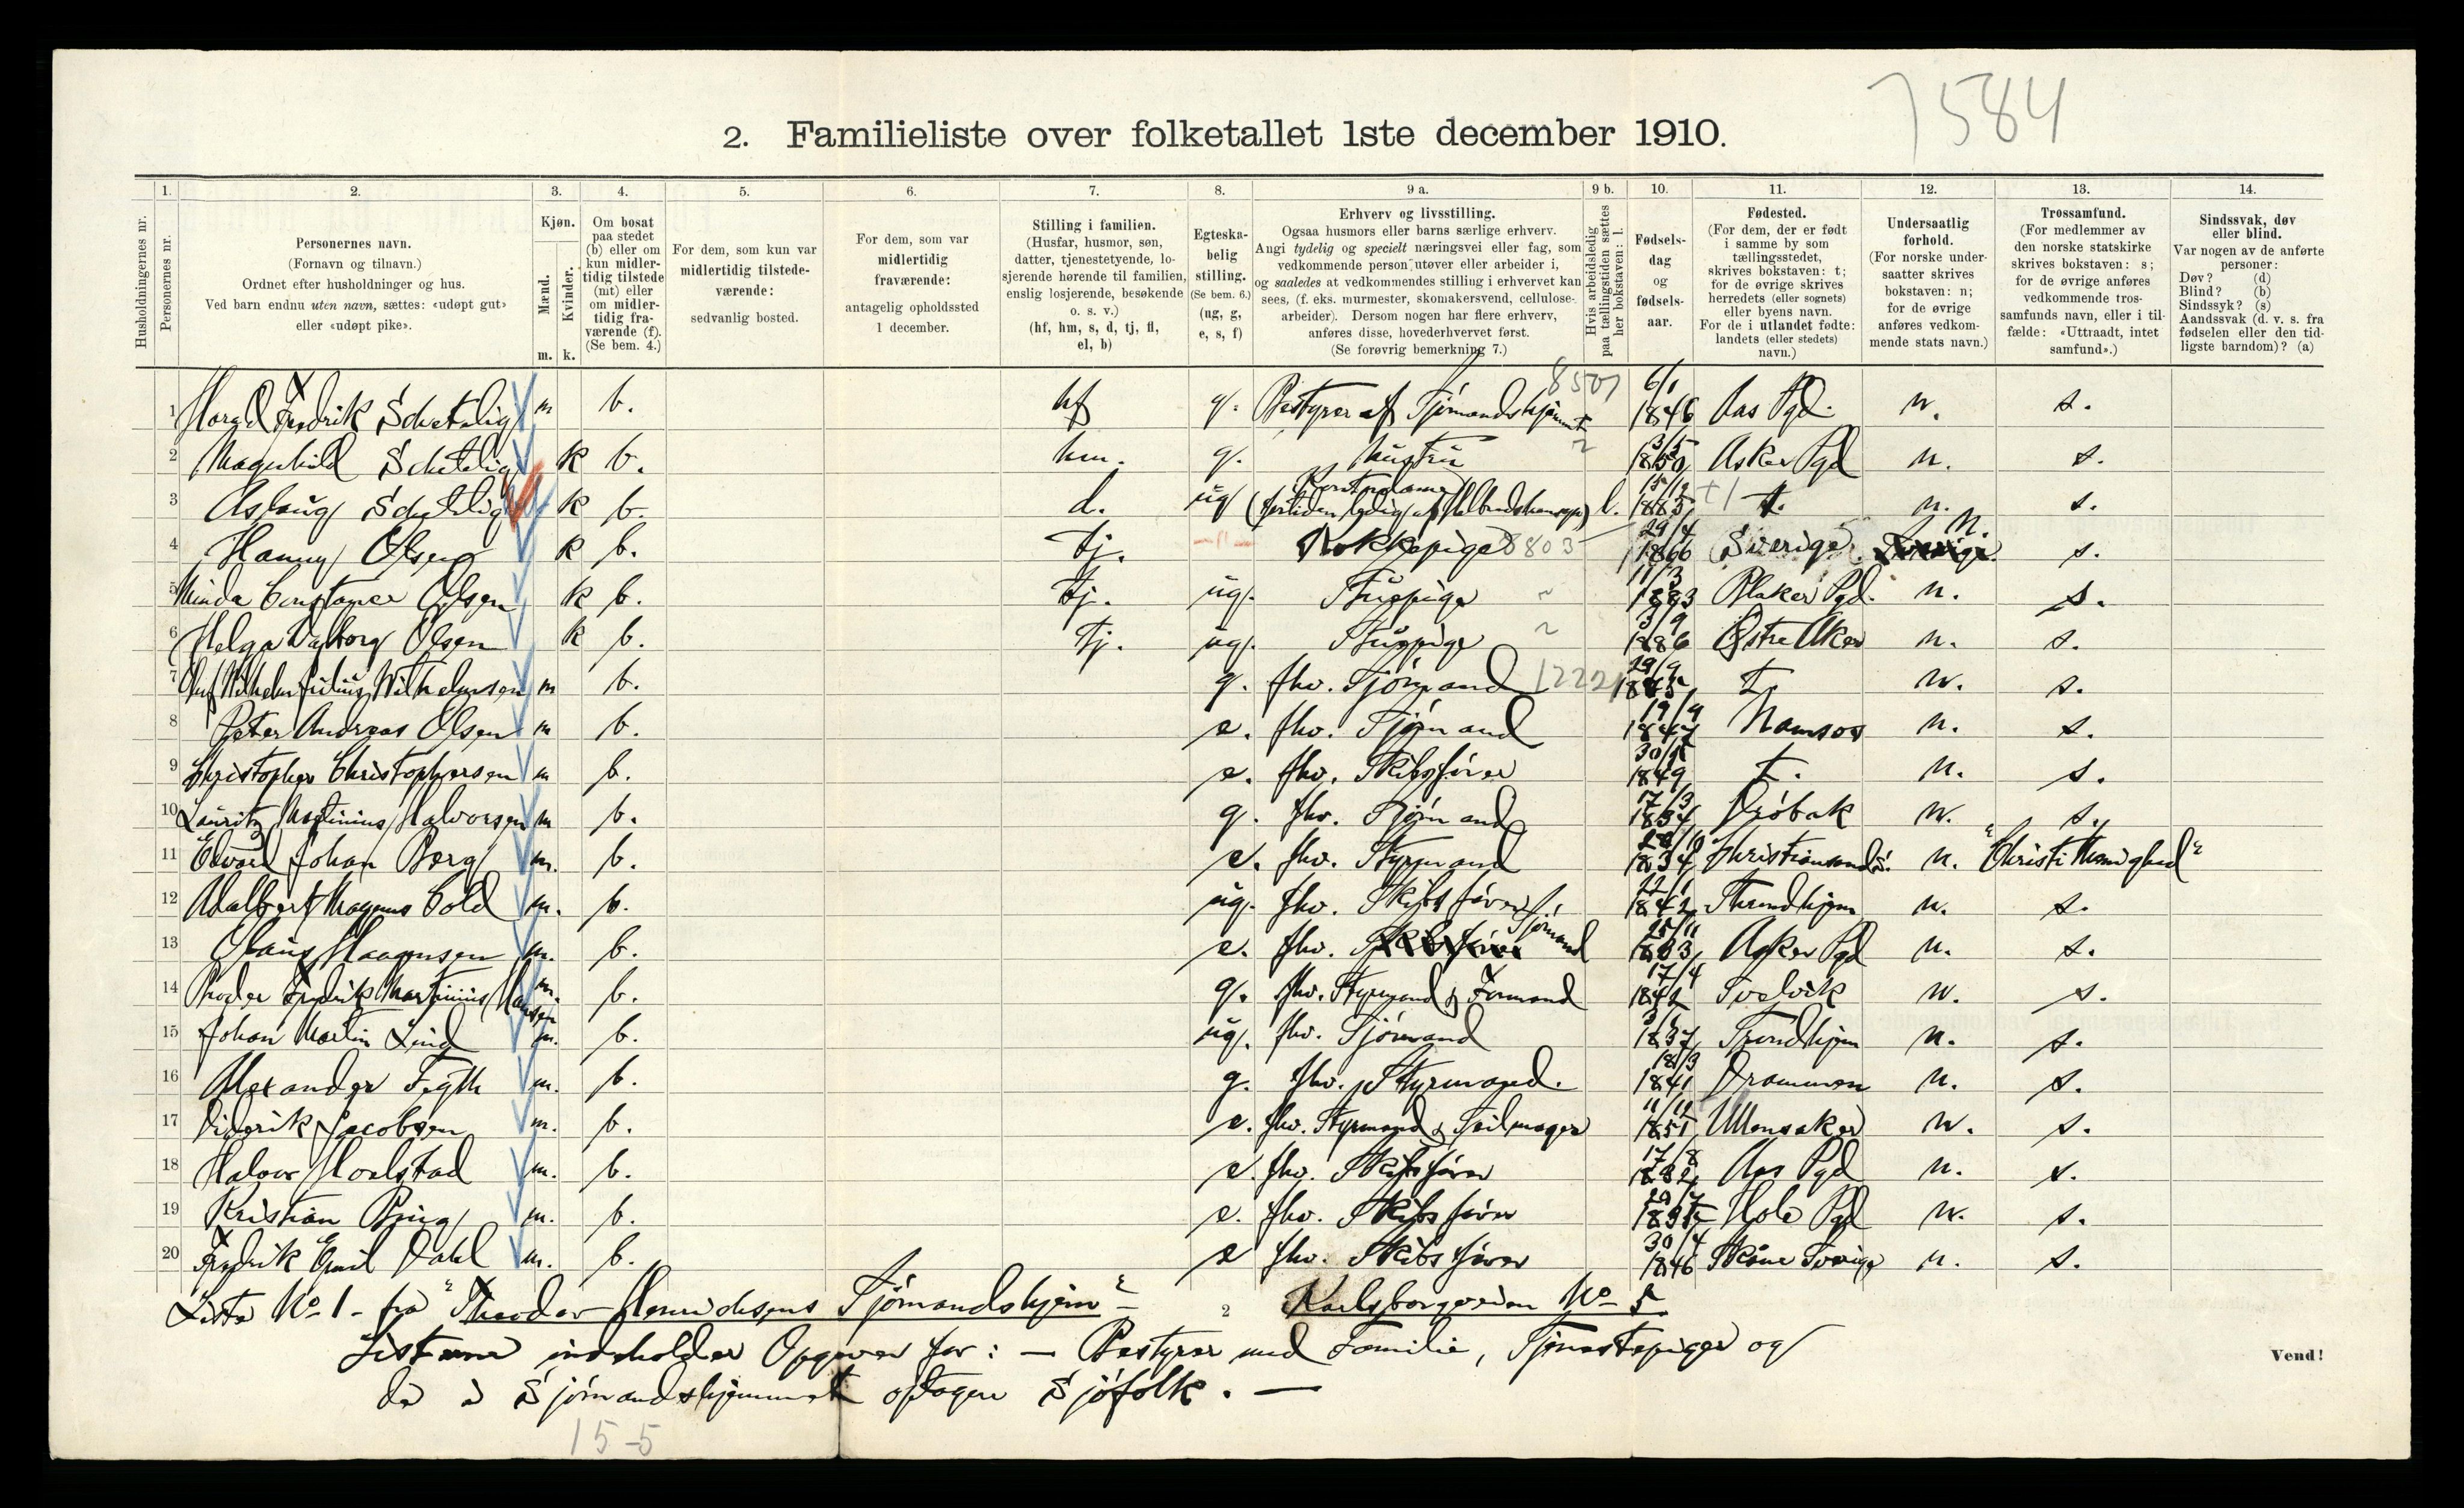 7584
2. Familieliste over folketallet 1ste december 1910.
Husholdningernes nr.
1. Personernes nr.
2. Personernes navn. (Fornavn og tilnavn.) Ordnet efter husholdninger og hus. Ved barn endnu uten navn, sættes: «udøpt gut» eller «udøpt pike».
3. Kjøn. Mænd. m. Kvinder. k.
4. Om bosat paa stedet (b) eller om kun midlertidig tilstede (mt) eller om midlertidig fraværende (f). (Se bem. 4.)
5. For dem, som kun var midlertidig tilstedeværende: sedvanlig bosted.
6. For dem, som var midlertidig fraværende: antagelig opholdssted 1 december.
7. Stilling i familien. (Husfar, husmor, søn, datter, tjenestetyende, losjerende hørende til familien, enslig losjerende, besøkende o. s. v.) (hf, hm, s, d, tj, fl, el, b)
8. Egteskabelig stilling. (Se bem. 6.) (ug, g, e, s, f)
9 a. Erhverv og livsstilling. Ogsaa husmors eller barns særlige erhverv. Angi tydelig og specielt næringsvei eller fag, som vedkommende person utøver eller arbeider i, og saaledes at vedkommendes stilling i erhvervet kan sees, (f. eks. murmester, skomakersvend, cellulosearbeider). Dersom nogen har flere erhverv, anføres disse, hovederhvervet først. (Se forøvrig bemerkning 7.)
9 b. Hvis arbeidsledig paa tællingstiden sættes her bokstaven: l.
10. Fødselsdag og fødselsaar.
11. Fødested. (For dem, der er født i samme by som tællingsstedet, skrives bokstaven: t; for de øvrige skrives herredets (eller sognets) eller byens navn. For de i utlandet fødte: landets (eller stedets) navn.)
12. Undersaatlig forhold. (For norske undersaatter skrives bokstaven: n; for de øvrige anføres vedkommende stats navn.)
13. Trossamfund. (For medlemmer av den norske statskirke skrives bokstaven: s; for de øvrige anføres vedkommende trossamfunds navn, eller i tilfælde: «Uttraadt, intet samfund».)
14. Sindssvak, døv eller blind. Var nogen av de anførte personer: Døv? (d) Blind? (b) Sindssyk? (s) Aandssvak (d. v. s. fra fødselen eller den tidligste barndom)? (a)
1 Fredrik Schetelig m b. hf g. Bestyrer af Sjömandshjemmet 8507 6/1 1846 Aas Pgd. n. s.
2 Magnhild Schetelig k b. hm. g. Hustru 1850 Asker Pgd n. s.
3 Aslaug Schetelig k b. d. ug l. 1885 t. n. s.
4 Hanny Olsen k b. tj. -"- Kokkepige 8803 29/4 1866 Sverige n. s.
5 Minda Constance Olsen k b. tj. ug. Stuepige 11/3 1883 Blaker Pgd. n. s.
6 Helga Valborg Olsen k b. tj. ug. Stuepige 3/9 1886 Østre Aker n. s.
7 Wilhelm Julius Wilhelmsen m b. g. fhv. Sjömand 12221 29/9 1845 t. n. s.
8 Peter Andreas Olsen m b. e. fhv. Sjömand 19/9 1847 Namsos n. s.
9 Christopher Christophersen m b. e. fhv. Skibsförer 1849 t. n. s.
10 Lauritz Martinius Halvorsen m b. g. fhv. Sjömand 17/3 1834 Dröbak n. s.
11 Edvard Johan Berg m. b. e. fhv. Styrmand 1834 Christianssand S. n. "Christi Menighed"
12 Adalbert Magnus Cold m. b. ug. fhv. Skibsförer 22/1 1842 Throndhjem n. s.
13 Haagensen m. b. e. fhv. Sjömand 25/11 1833 Asker Pgd n. s.
14 Fredrik Martinius Hansen m. b. g. fhv. Styrmand & Formand 17/4 1842 Svelvik n. s.
15 Johan Martin Lind m. b. ug. fhv. Sjömand 1837 Trondhjem n. s.
16 Alexander Fegth m. b. g. fhv. Styrmand. 18/3 1841 Drammen n. s.
17 Diderik Jacobsen m. b. e. fhv. Styrmand & Seilmager 11/12 1851 Ullensaker n. s.
18 Halvor Horlstad m. b. e. fhv. Skibsförer 17/8 1832 Aas Pgd n. s.
19 Kristian Bring m. b. e. fhv. Skibsförer Hole Pgd n. s.
20 Fredrik Emil Dahl m. b. e fhv. Skibsförer 30/4 1846 Skåne Sverige n. s.
Liste No 1 - fra "Theodor Henrichsens Sjömandshjem" 2 Karlsborgveien No 5
Listerne indeholder Opgaver for: — Bestyrer med Familie, Tjenestepiger og
de i Sjömandshjemmet optagne Sjöfolk. —
Vend!
15-5